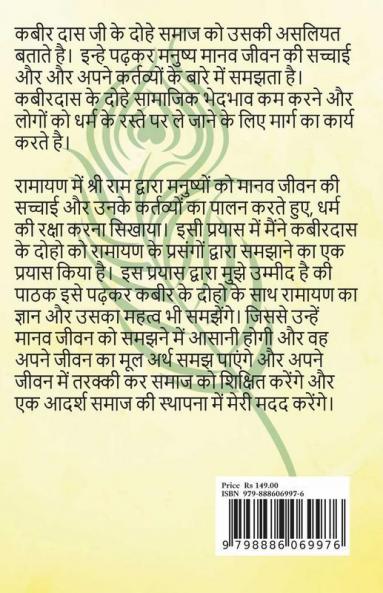 कबीर दास जी के दोहे समाज को उसकी असलियत
बताते है। इन्हे पढ़कर मनुष्य मानव जीवन की सच्चाई
और और अपने कर्तव्यों के बारे में समझता है।
कबीरदास के दोहे सामाजिक भेदभाव कम करने और
लोगों को धर्म के रस्ते पर ले जाने के लिए मार्ग का कार्य
करते है।
रामायण में श्री राम द्वारा मनुष्यों को मानव जीवन की
सच्चाई और उनके कर्तव्यों का पालन करते हुए, धर्म
की रक्षा करना सिखाया। इसी प्रयास में मैंने कबीरदास
के दोहो को रामायण के प्रसंगों द्वारा समझाने का एक
प्रयास किया है। इस प्रयास द्वारा मुझे उम्मीद है की
पाठक इसे पढ़कर कबीर के दोहों के साथ रामायण का
ज्ञान और उसका महत्व भी समझेंगे। जिससे उन्हें
मानव जीवन को समझने में आसानी होगी और वह
अपने जीवन का मूल अर्थ समझ पाएंगे और अपने
जीवन में तरक्की कर समाज को शिक्षित करेंगे और
एक आदर्श समाज की स्थापना में मेरी मदद करेंगे।
Price Rs 149.00
ISBN 979-888606997-6
9 798886 069976